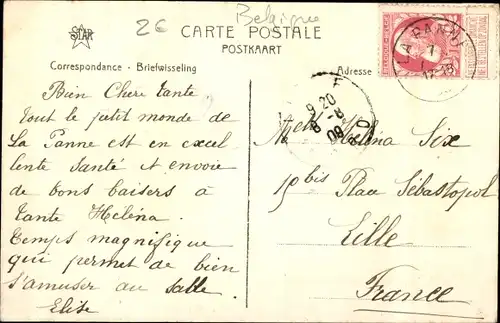 Belgique
2€
STAR
CARTE POSTALE
POSTKAART
Correspondance · Briefwisseling
Adresse
LA PANNE
7
12-13
9 20
8 - 8
09
Bien Chère tante
tout le petit monde de
La Panne est en excel
lente santé et envoie
de bons baisers à
tante Heléna.
Temps magnifique
qui permet de bien
s'amuser au sable
Elise
Heléna Six
19 bis Place Sébastopol
Lille
France